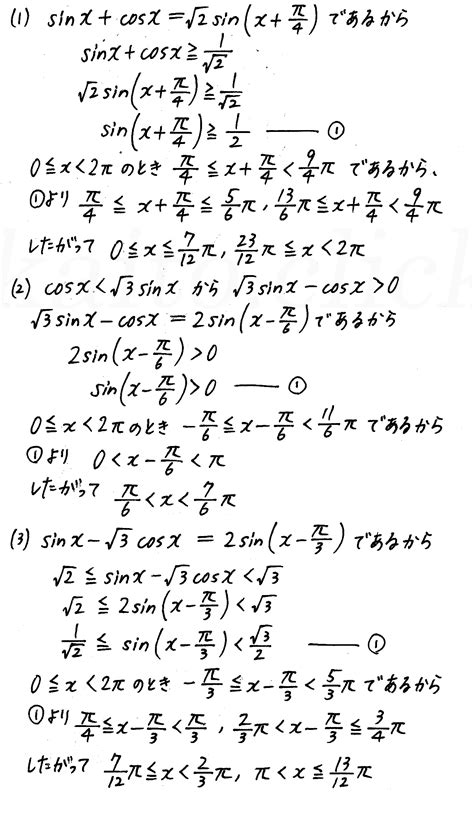 (1) sinx + cosx = √2 sin(x + π/4) であるから
sinx + cosx ≧ 1/√2
√2 sin(x + π/4) ≧ 1/√2
sin(x + π/4) ≧ 1/2 ―― ①
0 ≦ x < 2π のとき π/4 ≦ x + π/4 < 9/4 π であるから、
①より π/4 ≦ x + π/4 ≦ 5/6 π , 13/6 π ≦ x + π/4 < 9/4 π
したがって 0 ≦ x ≦ 7/12 π , 23/12 π ≦ x < 2π
(2) cosx < √3 sinx から √3 sinx − cosx > 0
√3 sinx − cosx = 2sin(x − π/6) であるから
2sin(x − π/6) > 0
sin(x − π/6) > 0 ―― ①
0 ≦ x < 2π のとき −π/6 ≦ x − π/6 < 11/6 π であるから
①より 0 < x − π/6 < π
したがって π/6 < x < 7/6 π
(3) sinx − √3 cosx = 2sin(x − π/3) であるから
√2 ≦ sinx − √3 cosx < √3
√2 ≦ 2sin(x − π/3) < √3
1/√2 ≦ sin(x − π/3) < √3/2 ―― ①
0 ≦ x < 2π のとき −π/3 ≦ x − π/3 < 5/3 π であるから
①より π/4 ≦ x − π/3 < π/3 , 2/3 π < x − π/3 ≦ 3/4 π
したがって 7/12 π ≦ x < 2/3 π , π < x ≦ 13/12 π